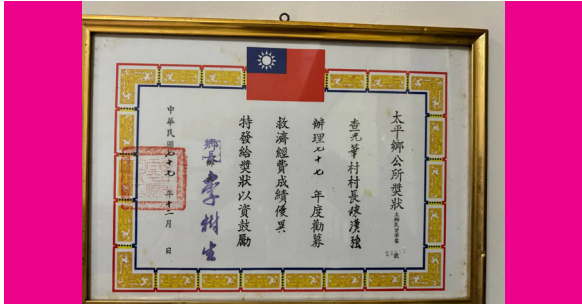 太平鄉公所獎狀
查光華村村長陳漢強
辦理七十七年度勸募
救濟經費成績優異
特發給獎狀以資鼓勵
鄉長 李樹生
中華民國七十七年十二月 日